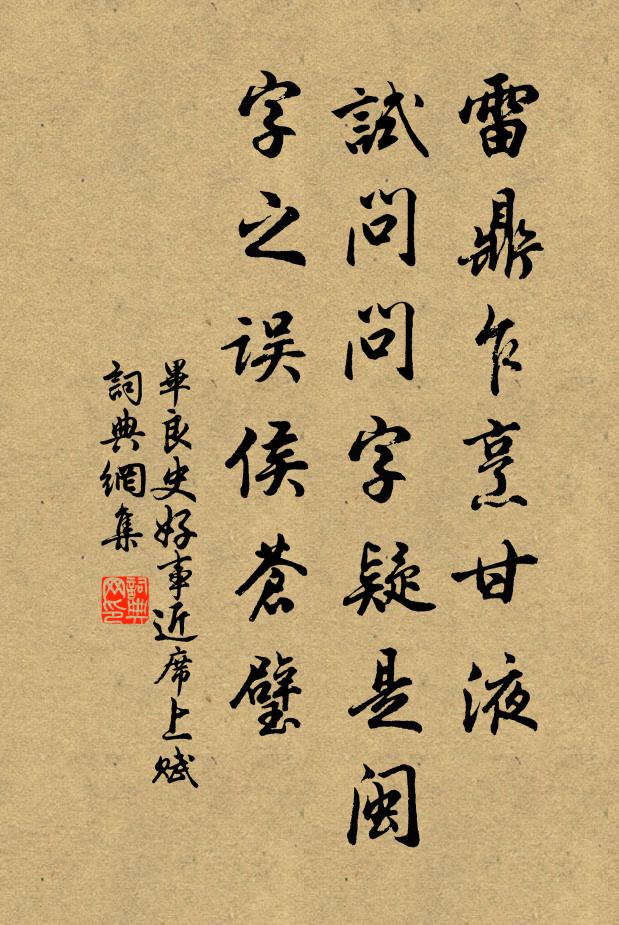 雷鼎乍烹甘液
試問問字疑是闽
字之误侯蒼璧
畢良史好事近席上赋
詞典網集
詞典
网印